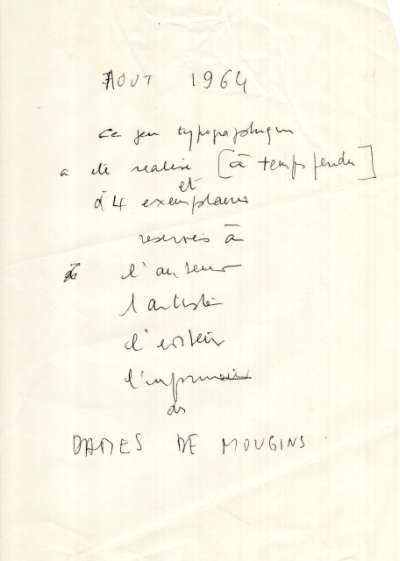 AOUT 1964
Ce jeu typographique
a été réalisé [à temps perdu]
et
à 4 exemplaires
réservés à
l'auteur
l'artiste
l'éditeur
l'imprimeur
des
DAMES DE MOUGINS.